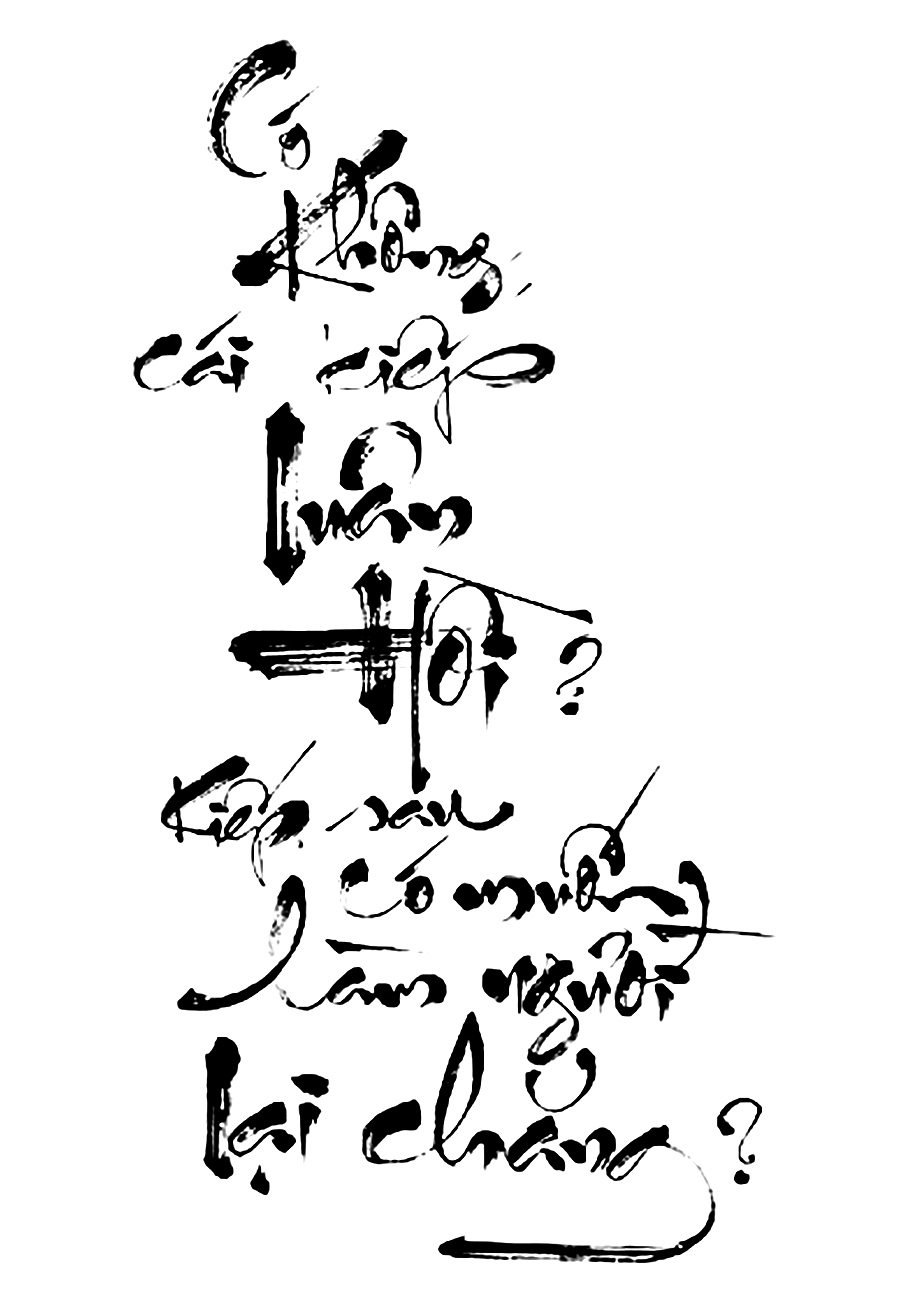 Có
Không
cái kiếp
luân
Hồi ?
Kiếp sau
Có muốn
làm người
lại chăng ?